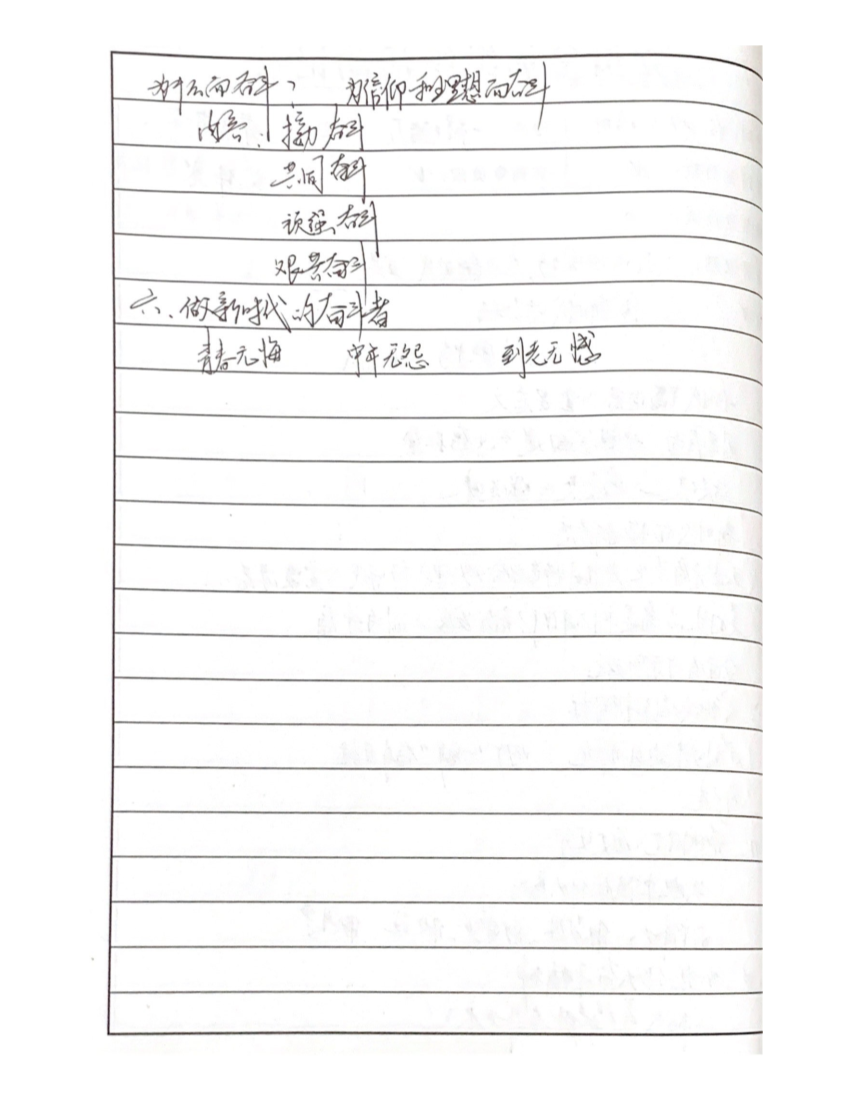 为什么而奋斗： 为信仰和理想而奋斗
内容：接力奋斗
共同奋斗
顽强奋斗
艰苦奋斗
六、做新时代的奋斗者
青春无悔 中年无怨 到老无憾